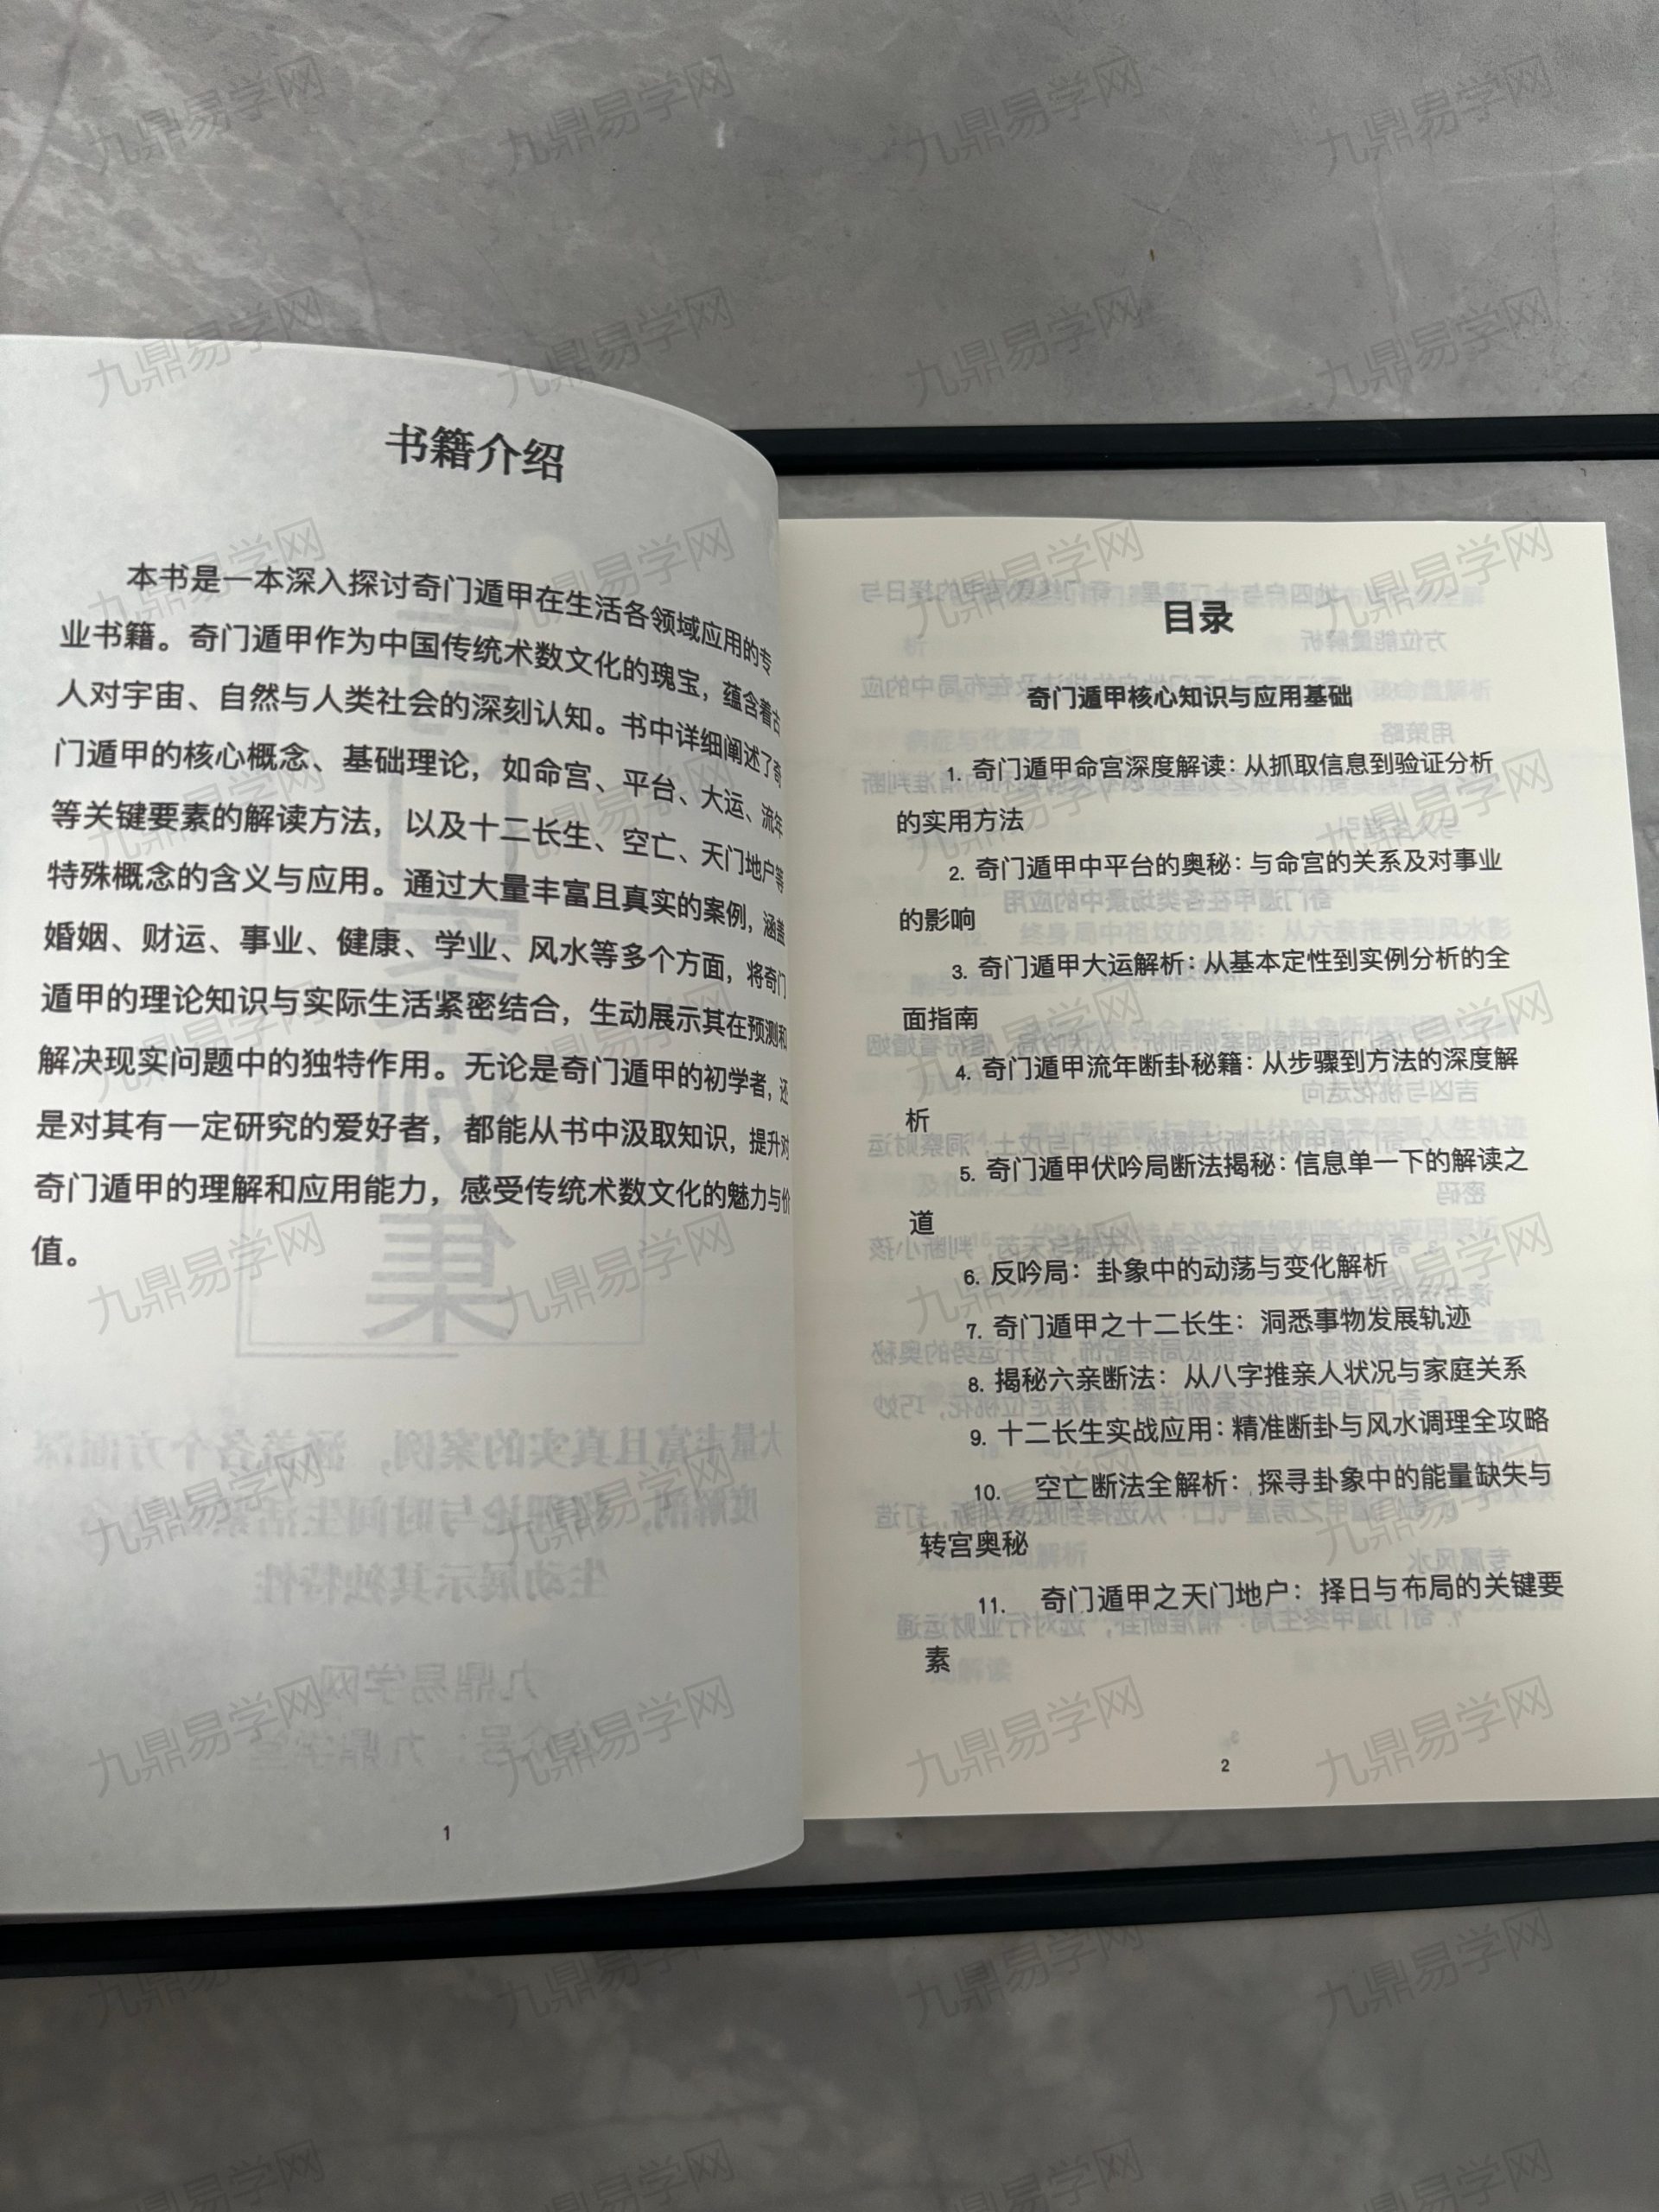 书籍介绍
本书是一本深入探讨奇门遁甲在生活各领域应用的专
业书籍。奇门遁甲作为中国传统术数文化的瑰宝，蕴含着古
人对宇宙、自然与人类社会的深刻认知。书中详细阐述了奇
门遁甲的核心概念、基础理论，如命宫、平台、大运、流年
等关键要素的解读方法，以及十二长生、空亡、天门地户等
特殊概念的含义与应用。通过大量丰富且真实的案例，涵盖
婚姻、财运、事业、健康、学业、风水等多个方面，将奇门
遁甲的理论知识与实际生活紧密结合，生动展示其在预测和
解决现实问题中的独特作用。无论是奇门遁甲的初学者，还
是对其有一定研究的爱好者，都能从书中汲取知识，提升对
奇门遁甲的理解和应用能力，感受传统术数文化的魅力与价
值。
1
目录
奇门遁甲核心知识与应用基础
1. 奇门遁甲命宫深度解读：从抓取信息到验证分析
的实用方法
2. 奇门遁甲中平台的奥秘：与命宫的关系及对事业
的影响
3. 奇门遁甲大运解析：从基本定性到实例分析的全
面指南
4. 奇门遁甲流年断卦秘籍：从步骤到方法的深度解
析
5. 奇门遁甲伏吟局断法揭秘：信息单一下的解读之
道
6. 反吟局：卦象中的动荡与变化解析
7. 奇门遁甲之十二长生：洞悉事物发展轨迹
8. 揭秘六亲断法：从八字推亲人状况与家庭关系
9. 十二长生实战应用：精准断卦与风水调理全攻略
10. 空亡断法全解析：探寻卦象中的能量缺失与
转宫奥秘
11. 奇门遁甲之天门地户：择日与布局的关键要
素
2
九鼎易学网